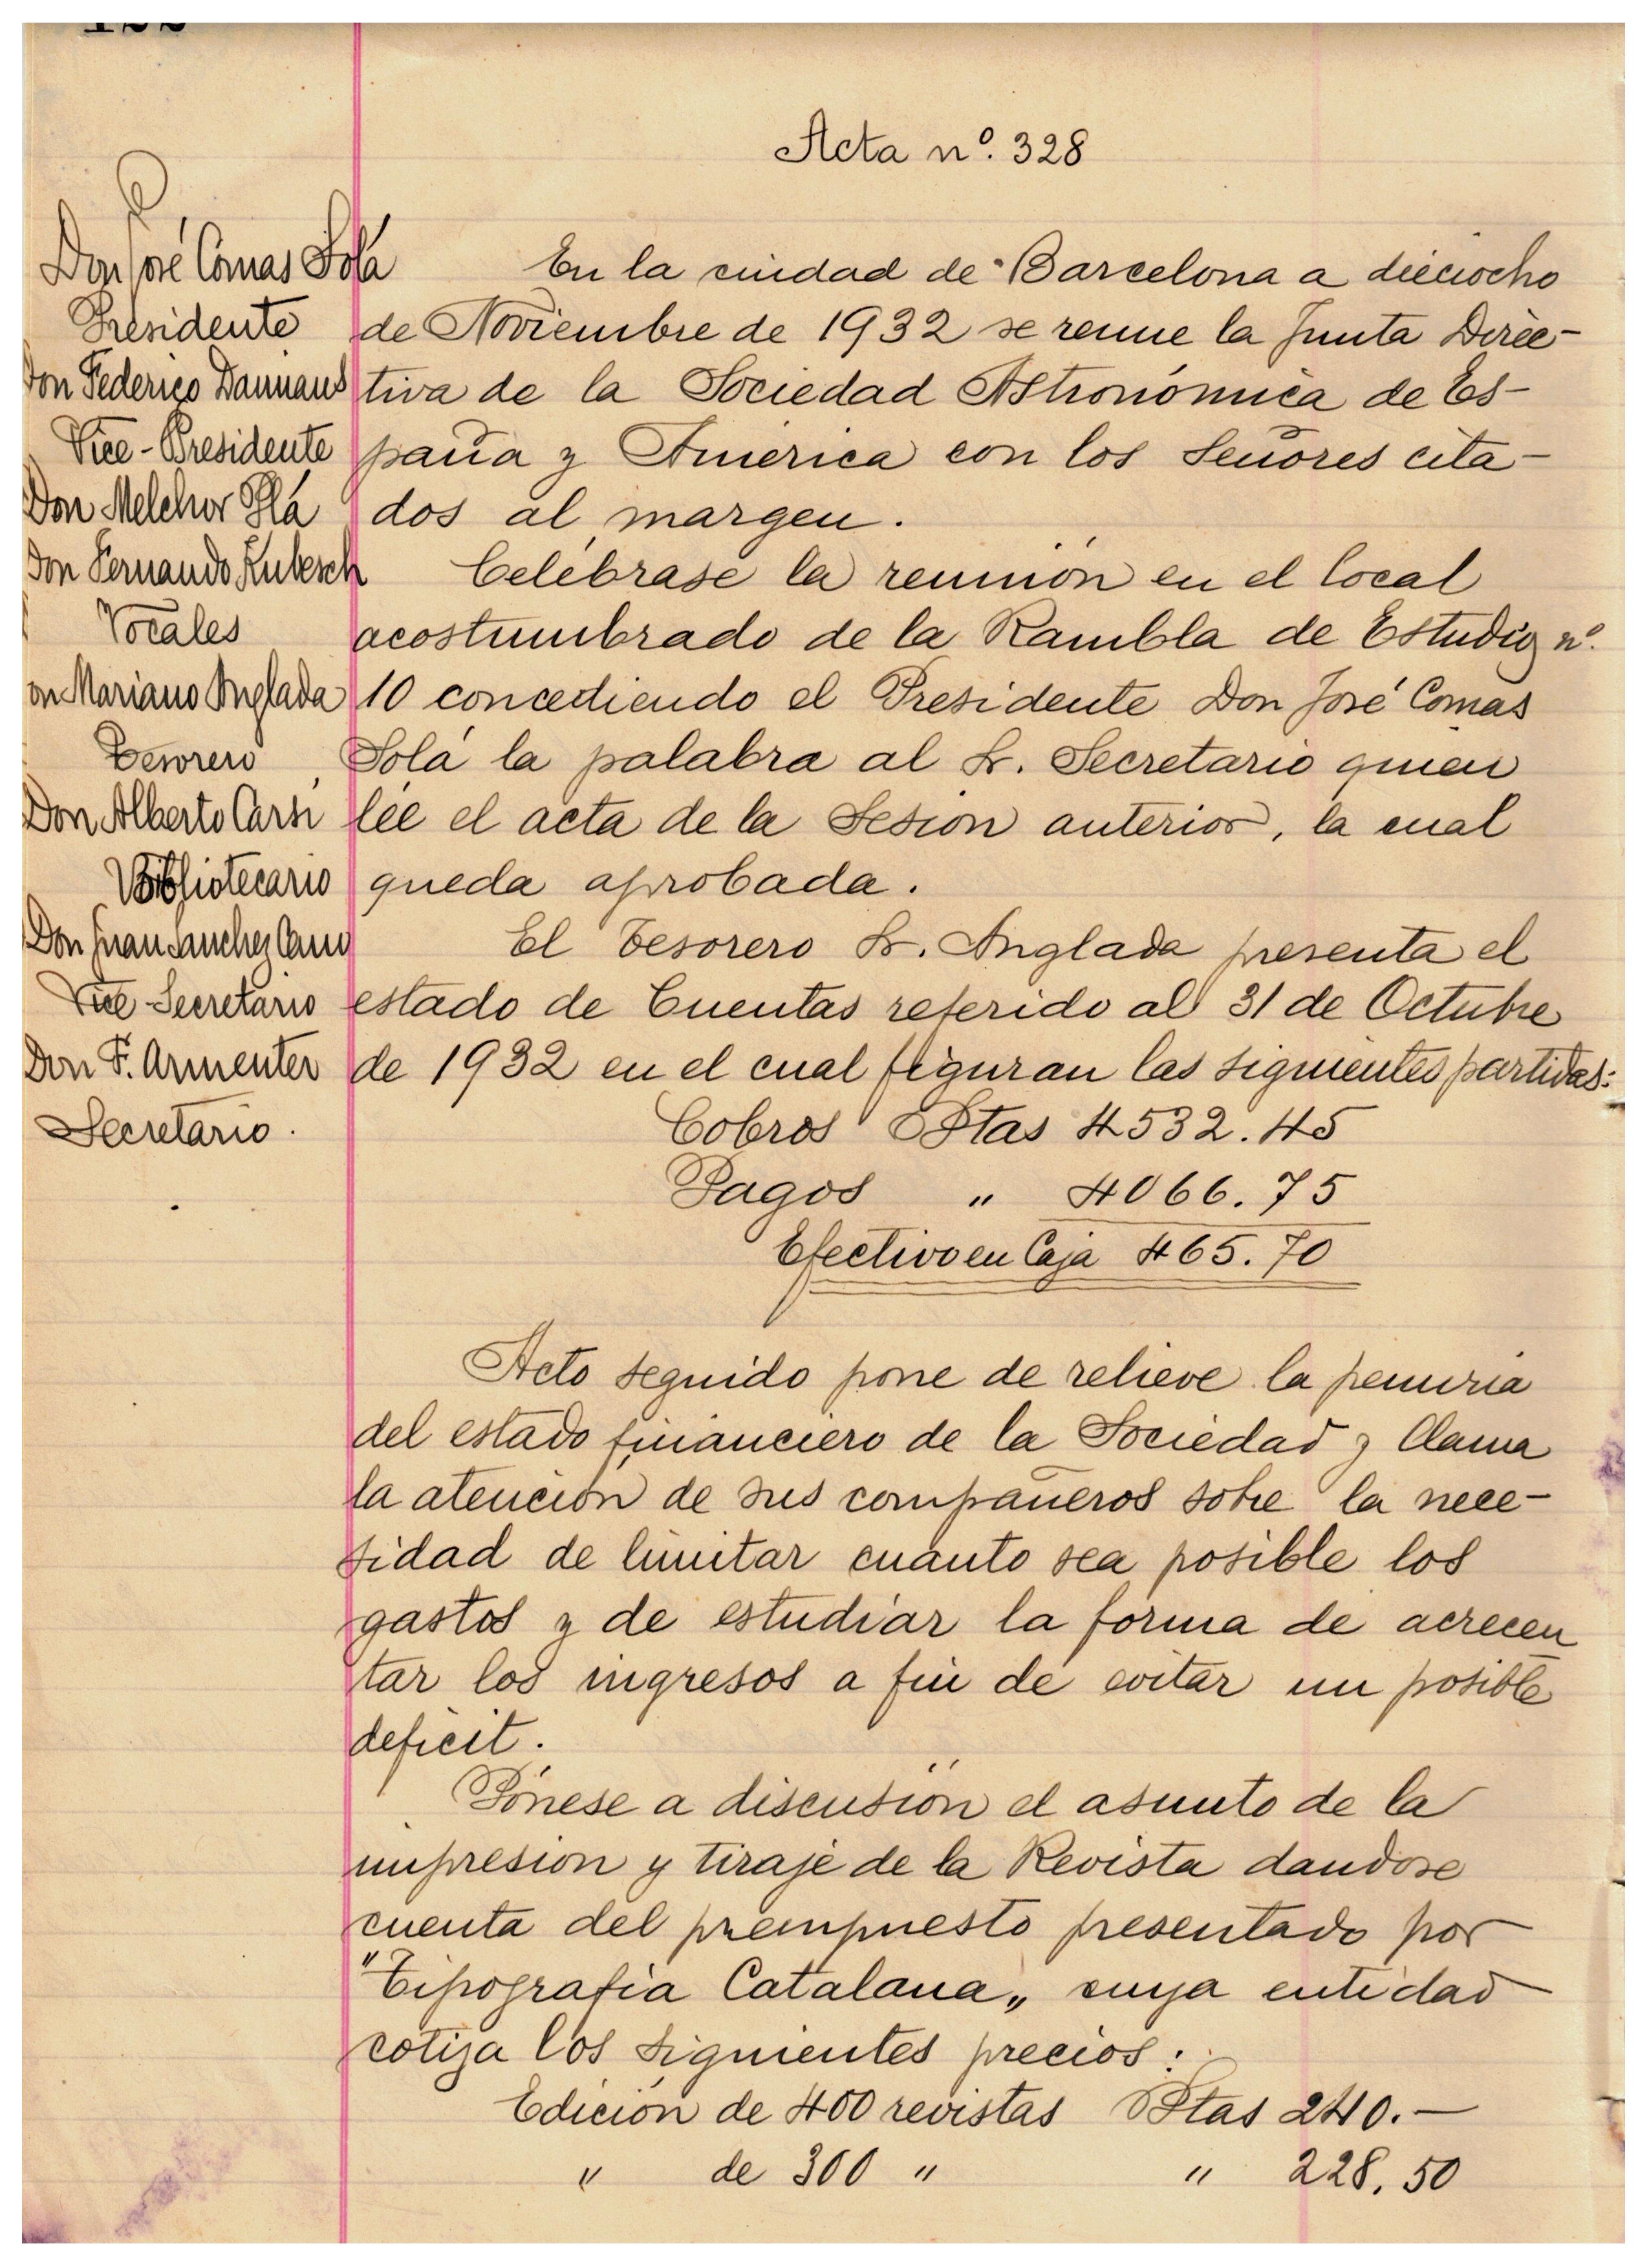 Acta nº. 328
Don José Comas Solá
Presidente
Don Federico Dannans
Vice-Presidente
Don Melchor Plá
Don Fernando Kubesch
Vocales
on Mariano Anglada
Tesorero
Don Alberto Carsi
Bibliotecario
Don Juan Sanchez Cano
Vice-Secretario
Don F. Armenter
Secretario.
En la ciudad de Barcelona a dieciocho
de Noviembre de 1932 se reune la Junta Direc-
tiva de la Sociedad Astronómica de Es-
paña y América con los Señores cita-
dos al margen.
Celébrase la reunión en el local
acostumbrado de la Rambla de Estudios nº.
10 concediendo el Presidente Don José Comas
Solá la palabra al Sr. Secretario quien
lée el acta de la Sesión anterior, la cual
queda aprobada.
El Tesorero Sr. Anglada presenta el
estado de Cuentas referido al 31 de Octubre
de 1932 en el cual figuran las siguientes partidas:
Cobros Ptas 4532.45
Pagos " 4066.75
Efectivo en Caja 465.70
Acto seguido pone de relieve la penuria
del estado financiero de la Sociedad y llama
la atención de sus compañeros sobre la nece-
sidad de limitar cuanto sea posible los
gastos y de estudiar la forma de acrecen
tar los ingresos a fin de evitar un posible
deficit.
Pónese a discusión el asunto de la
impresión y tiraje de la Revista dandose
cuenta del presupuesto presentado por
"Tipografia Catalana„ cuya entidad
cotiza los siguientes precios:
Edición de 400 revistas Ptas 240.—
" de 300 " " 228,50